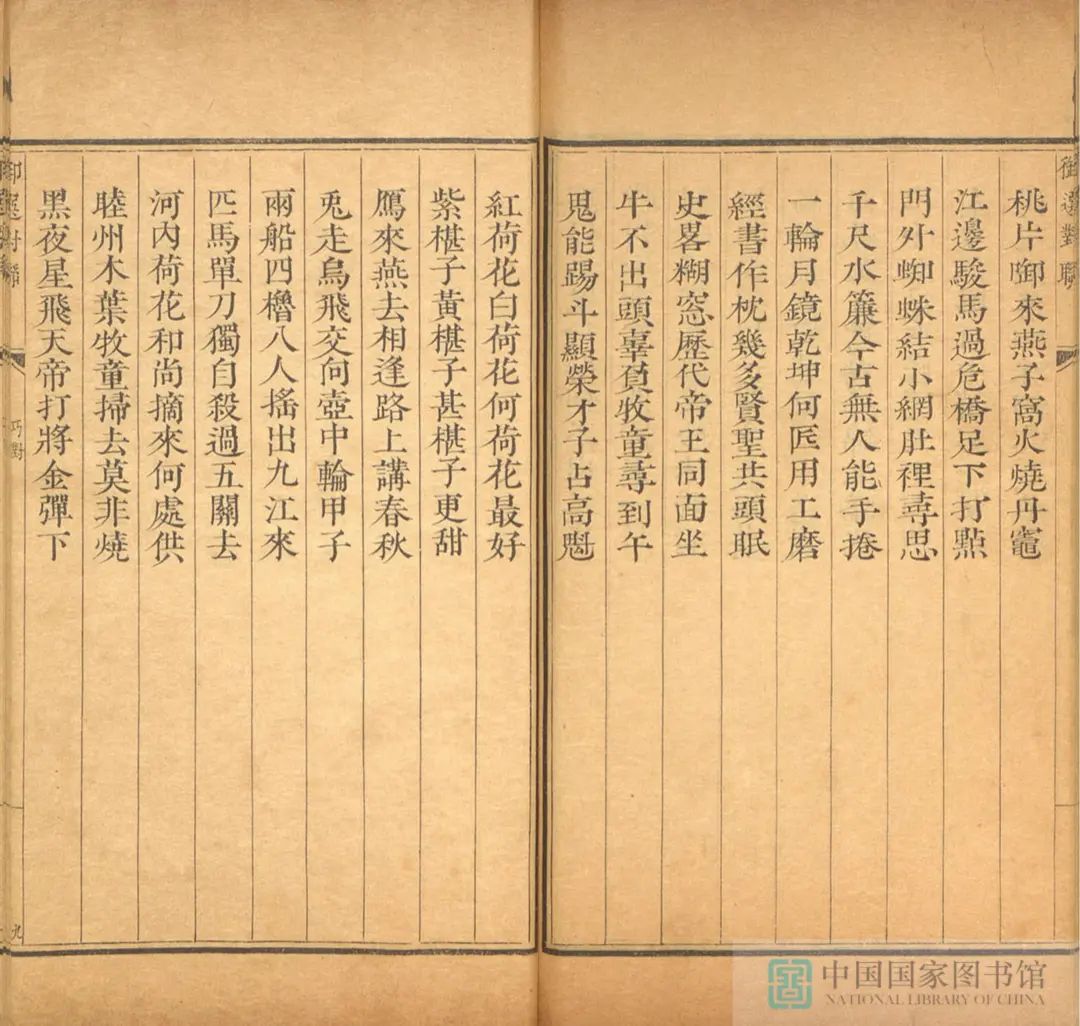 御選對聯
桃片啣來燕子窩火燒丹竈
江邊駿馬過危橋足下打點
門外蜘蛛結小網肚裡尋思
千尺水簾今古無人能手捲
一輪月鏡乾坤何匠用工磨
經書作枕幾多賢聖共頭眠
史畧糊窓歷代帝王同面坐
牛不出頭辜負牧童尋到午
鬼能踢斗顯榮才子占高魁
紅荷花白荷花何荷花最好
紫椹子黃椹子甚椹子更甜
鴈來燕去相逢路上講春秋
兎走烏飛交向壺中輪甲子
兩船四櫓八人搖出九江來
匹馬單刀獨自殺過五關去
河內荷花和尚摘來何處供
睦州木葉牧童掃去莫非燒
黑夜星飛天帝打將金彈下
御選對聯
巧對
九
中国国家图书馆
NATIONAL LIBRARY OF CHINA